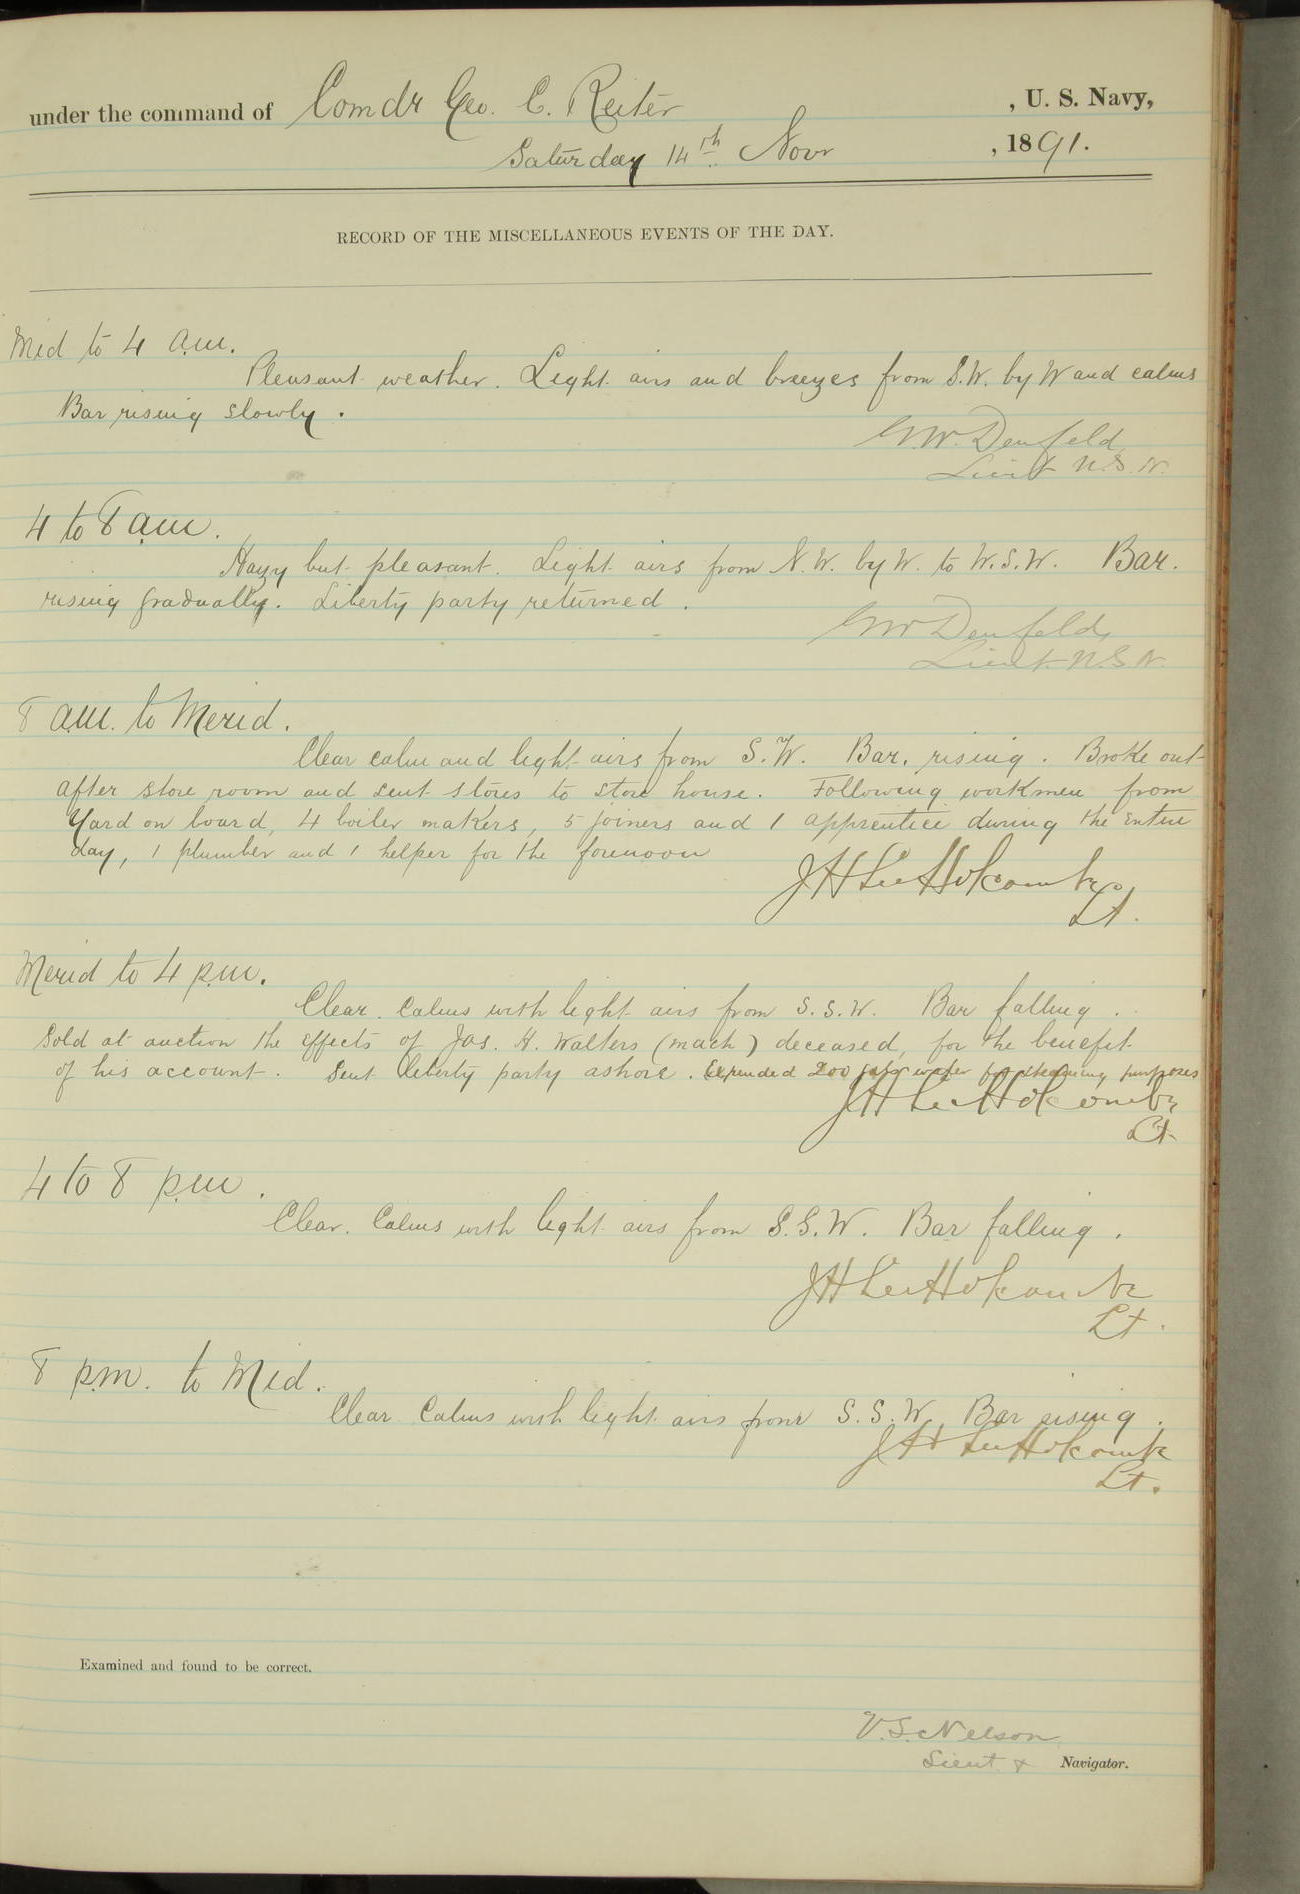 under the command of Comdr Geo. C. Reiter , U. S. Navy,
Saturday 14th Novr , 1891.
RECORD OF THE MISCELLANEOUS EVENTS OF THE DAY.
Mid to 4 a.m.
Pleasant weather. Light airs and breezes from S.W. by W and calms
Bar rising slowly.
G.W. Denfeld
Lieut U.S.N.
4 to 8 a.m.
Hazy but pleasant. Light airs from N.W. by W. to W.S.W. Bar.
rising gradually. Liberty party returned.
GW Denfeld,
Lieut. U.S.N.
8 a.m. to Merid.
Clear calm and light airs from S.W. Bar. rising. Broke out
after store room and sent stores to store house. Following workmen from
Yard on board, 4 boiler makers, 5 joiners and 1 apprentice during the entire
day, 1 plumber and 1 helper for the forenoon
JH Lee Holcombe
Lt.
Merid to 4 p.m.
Clear. Calms with light airs from S.S.W. Bar falling.
Sold at auction the effects of Jas. H. Walters (mach) deceased, for the benefit
of his account. Sent liberty party ashore. Expended 200 gals water for steaming purposes
JH Lee Holcombe
Lt.
4 to 8 p.m.
Clear. Calms with light airs from S.S.W. Bar falling.
JH Lee Holcombe
Lt.
8 p.m. to Mid.
Clear Calms with light airs from S.S.W. Bar rising.
JH Lee Holcombe
Lt.
Examined and found to be correct.
V.S. Nelson
Lieut & Navigator.